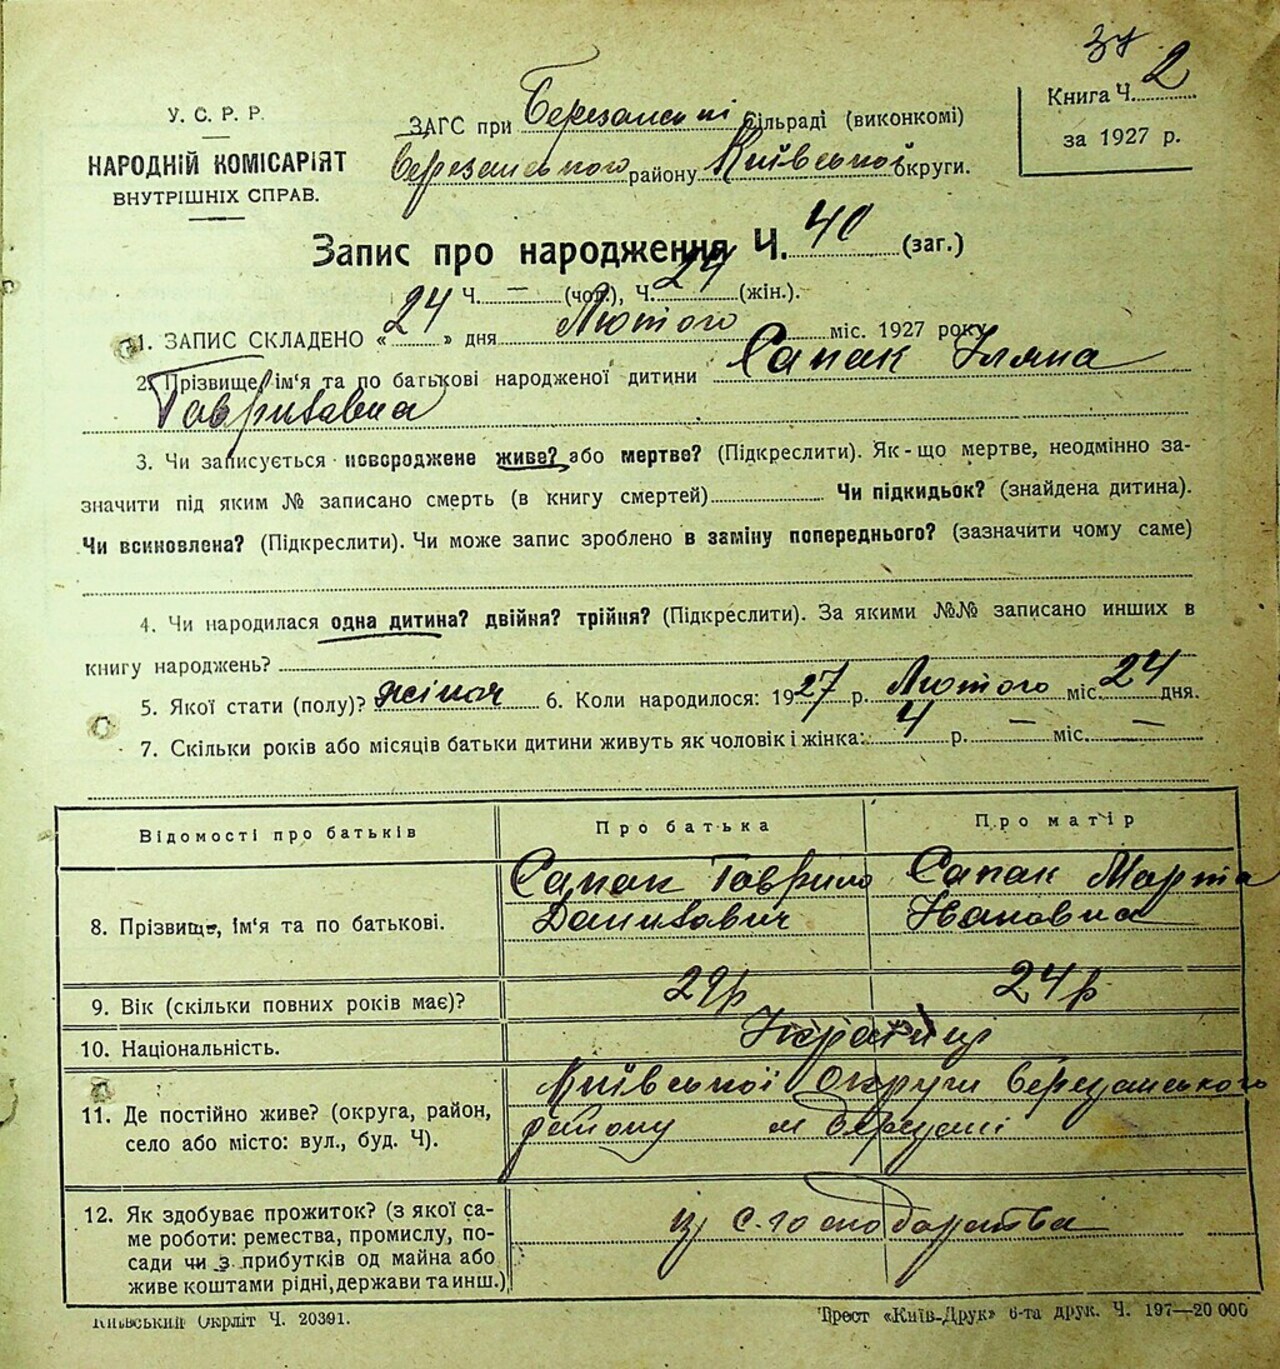 37
У. С. Р. Р.
НАРОДНІЙ КОМІСАРІЯТ
ВНУТРІШНІХ СПРАВ.
ЗАГС при Березанські сільраді (виконкомі)
Березанського району Київської округи.
Книга Ч. 2
за 1927 р.
Запис про народження Ч. 40 (заг.)
Ч. — (чол.), Ч. 24 (жін.).
1. ЗАПИС СКЛАДЕНО « 24 » дня Лютого міс. 1927 року
2. Прізвище, ім'я та по батькові народженої дитини Сапак Уляна
Гаврилавна
3. Чи записується новороджене живе? або мертве? (Підкреслити). Як-що мертве, неодмінно за-
значити під яким № записано смерть (в книгу смертей) Чи підкидьок? (знайдена дитина).
Чи всиновлена? (Підкреслити). Чи може запис зроблено в заміну попереднього? (зазначити чому саме)
4. Чи народилася одна дитина? двійня? трійня? (Підкреслити). За якими №№ записано инших в
книгу народжень?
5. Якої стати (полу)? жіноч 6. Коли народилося: 1927 р. Лютого міс. 24 дня.
7. Скільки років або місяців батьки дитини живуть як чоловік і жінка: 4 р. — міс. —
Відомості про батьків Про батька Про матір
8. Прізвище, ім'я та по батькові. Сапак Гаврило Данилавич Сапак Марта Івановна
9. Вік (скільки повних років має)? 29р 24р
10. Національність. Українці
11. Де постійно живе? (округа, район, Київської Округи Березанського
село або місто: вул., буд. Ч). району м Березані
12. Як здобуває прожиток? (з якої са-
ме роботи: ремества, промислу, по- из с.-господарства
сади чи з прибутків од майна або
живе коштами рідні, держави та инш.)
Київський Окрліт Ч. 20391.
Трест «Київ-Друк» 6-та друк. Ч. 197—20 000